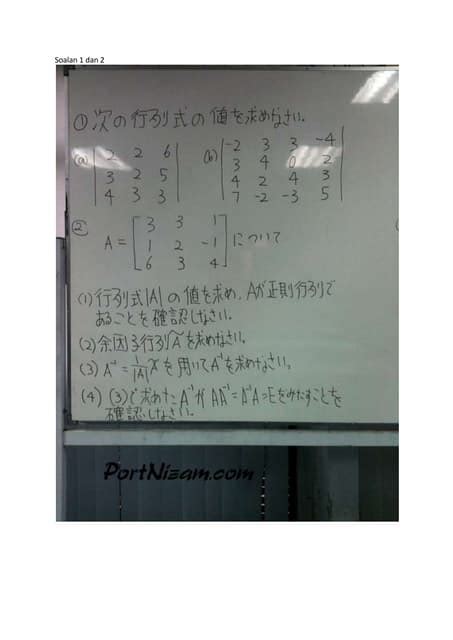 Soalan 1 dan 2
① 次の行列式の値を求めなさい。
(a) | 2 2 6 | (b) | -2 3 3 -4 |
| 3 2 5 | | 3 4 0 2 |
| 4 3 3 | | 4 2 4 3 |
| 7 -2 -3 5 |
②
A = [ 3 3 1 ; 1 2 -1 ; 6 3 4 ] について
(1) 行列式|A|の値を求め、Aが正則行列で
あることを確認しなさい。
(2) 余因子行列Ãを求めなさい。
(3) A⁻¹ = 1/|A| Ãを用いてA⁻¹を求めなさい。
(4) (3)で求めたA⁻¹がAA⁻¹=A⁻¹A=Eをみたすことを
確認しなさい。
PortNizam.com